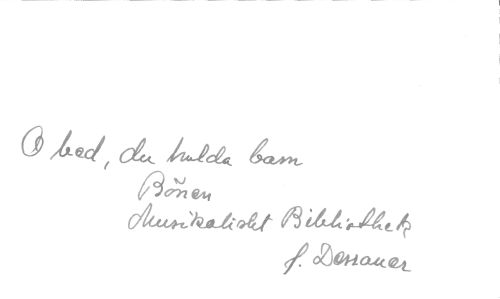 O bed, du hulda barn
Bönen
Musikaliskt Bibliothek
J. Dessauer